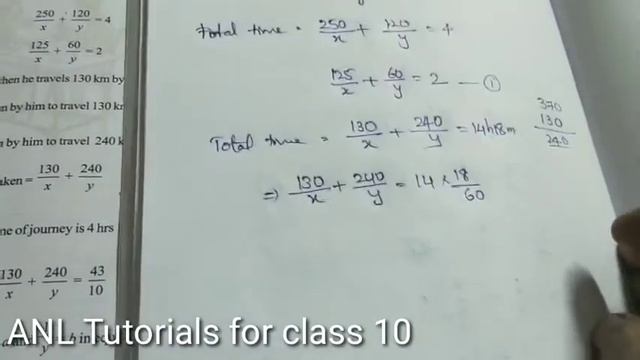 250/x + 120/y = 4
125/x + 60/y = 2
then he travels 130 km by
n by him to travel 130 k
n by him to travel 240 k
ken = 130/x + 240/y
ne of journey is 4 hrs
130/x + 240/y = 43/10
Total time = 250/x + 120/y = 4
125/x + 60/y = 2 — ①
Total time = 130/x + 240/y = 14h18m
370
130
240
⇒ 130/x + 240/y = 14 × 18/60
ANL Tutorials for class 10